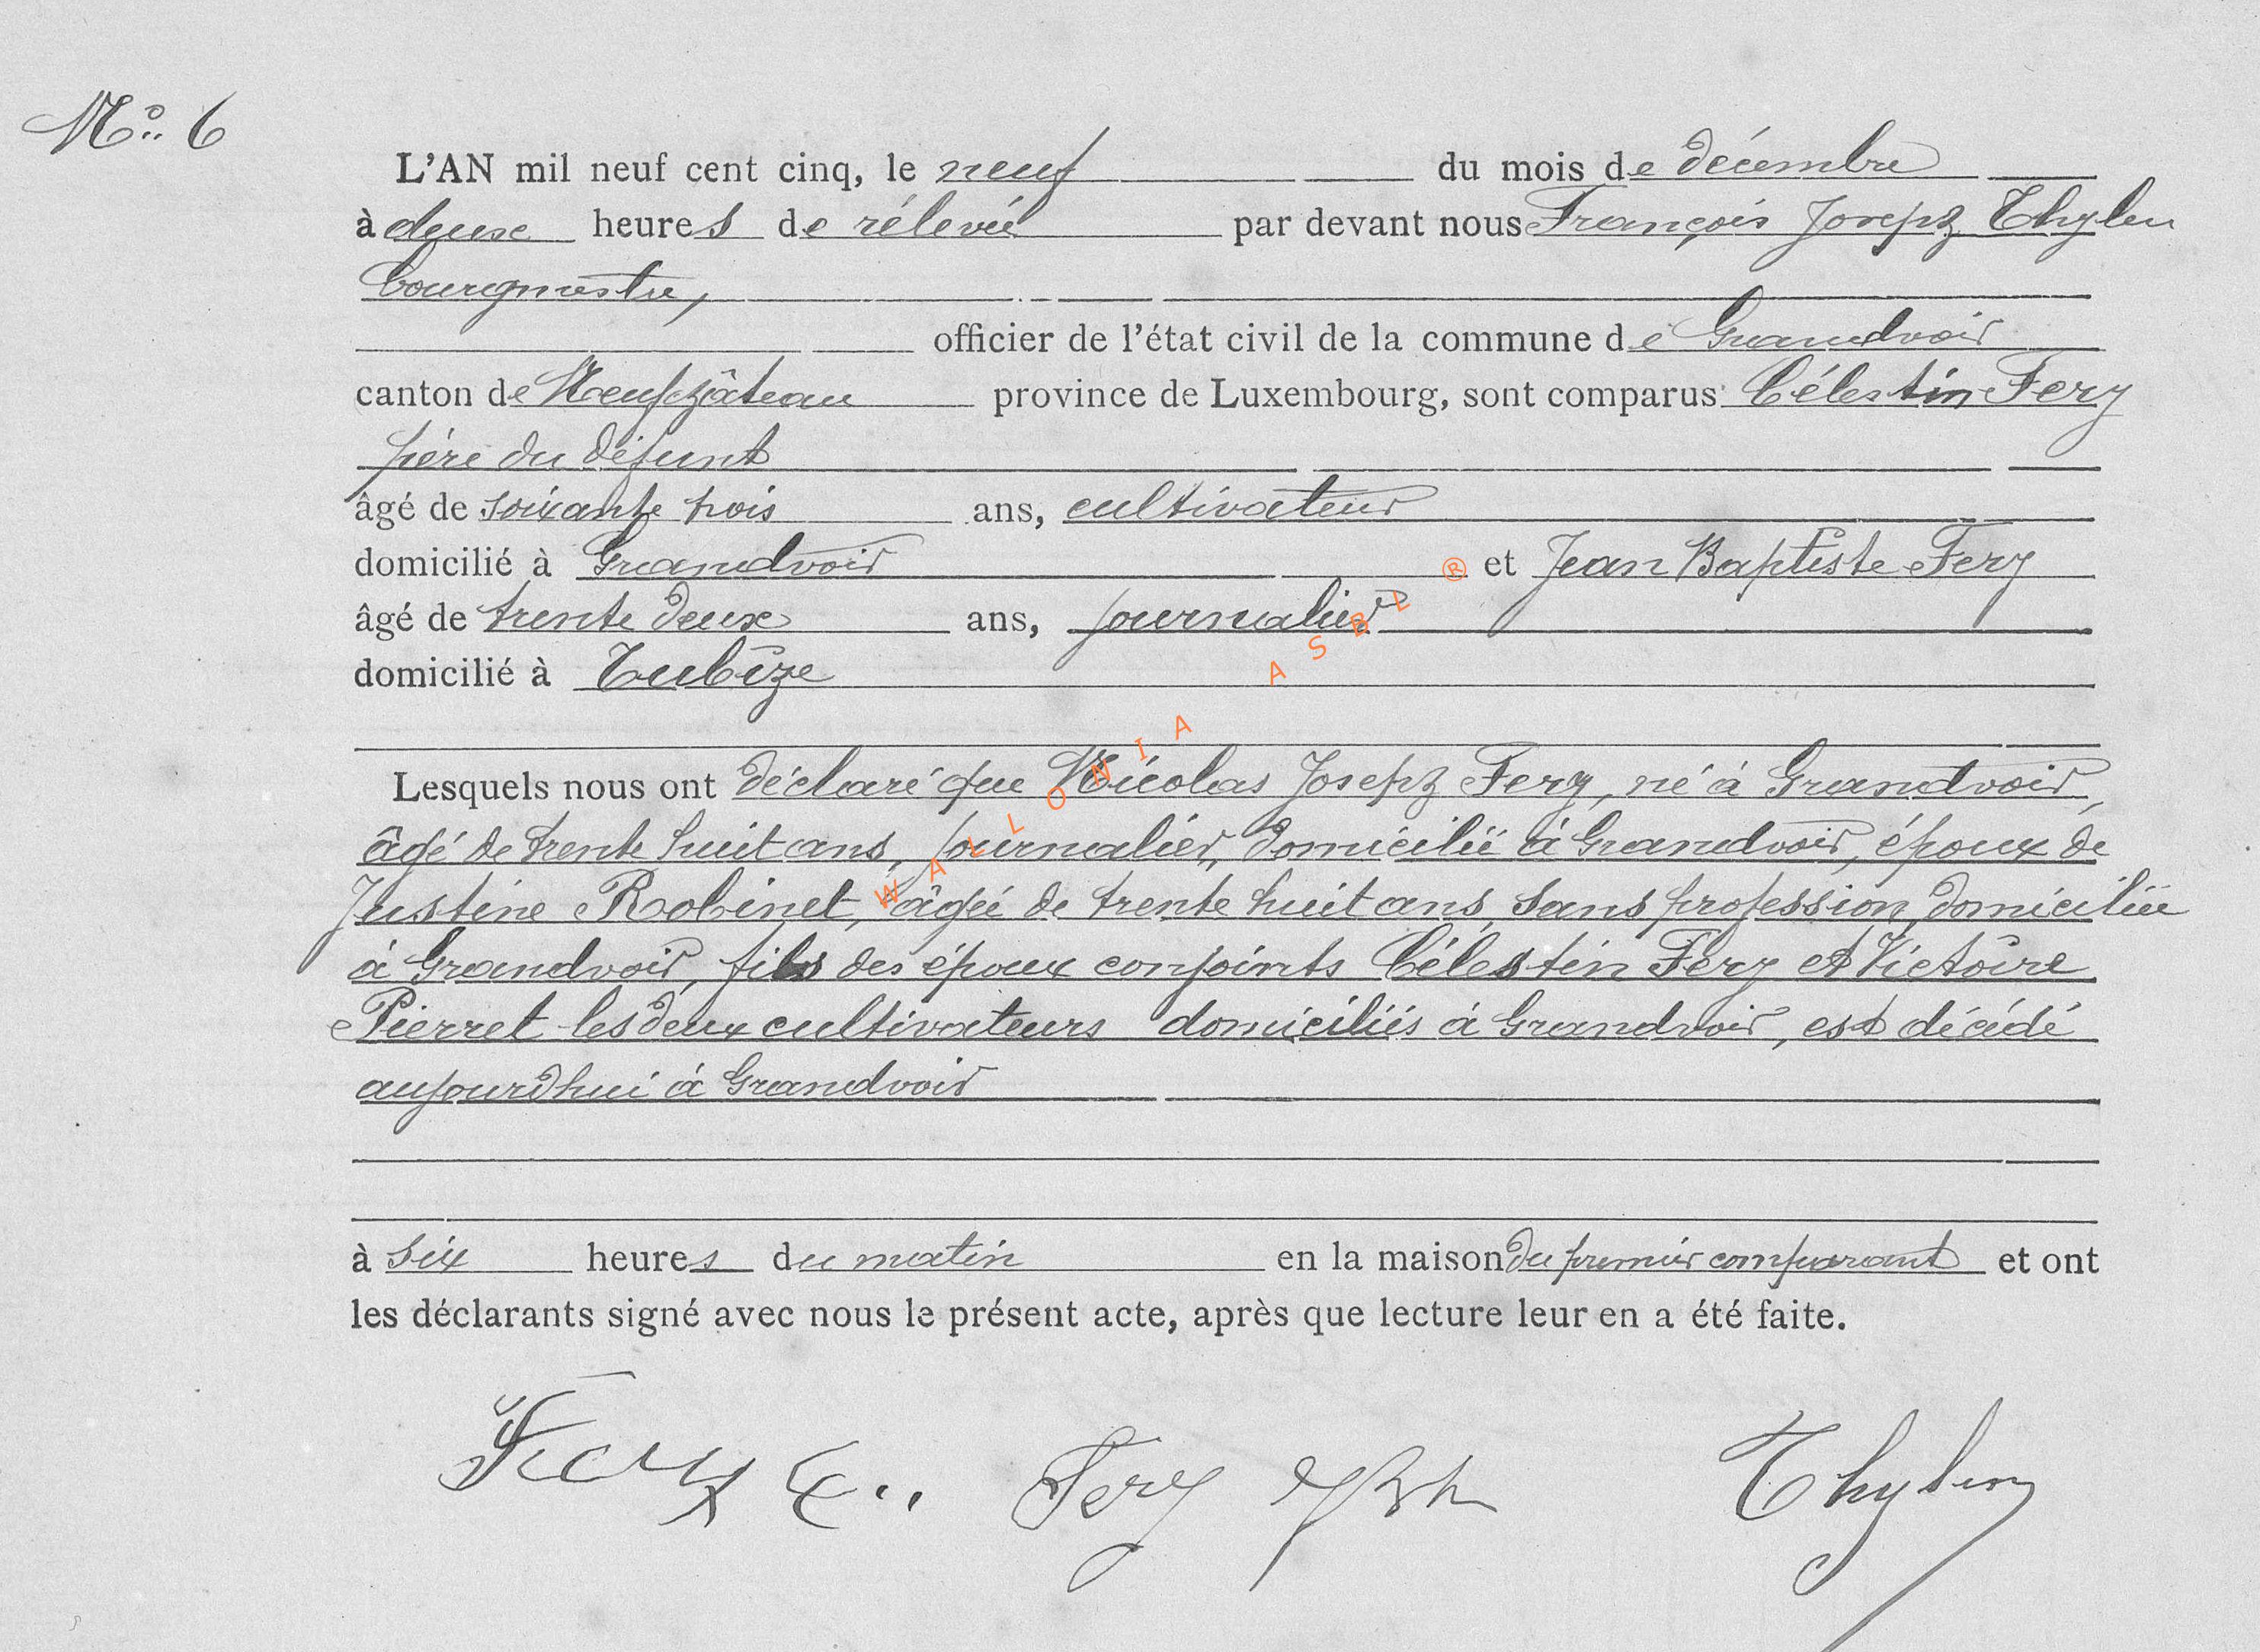 No 6
L'AN mil neuf cent cinq, le neuf du mois de décembre
à deux heures de rélevée par devant nous François Joseph Thylen
bourgmestre,
officier de l'état civil de la commune de Grandvoir
canton de Neufchâteau province de Luxembourg, sont comparus Célestin Fery
père du défunt
âgé de soixante trois ans, cultivateur
domicilié à Grandvoir et Jean Baptiste Fery
âgé de trente deux ans, journalier
domicilié à Tubize
Lesquels nous ont déclaré que Nicolas Joseph Fery, né à Grandvoir,
âgé de trente huit ans, journalier, domicilié à Grandvoir, époux de
Justine Robinet, âgée de trente huit ans, sans profession, domiciliée
à Grandvoir, fils des époux conjoints Célestin Fery et Victoire
Pierret les deux cultivateurs domiciliés à Grandvoir, est décédé
aujourdhui à Grandvoir
à six heures du matin en la maison du premier comparant et ont
les déclarants signé avec nous le présent acte, après que lecture leur en a été faite.
Féry C.. Fery Thylen
WALLONIA ASBL ®